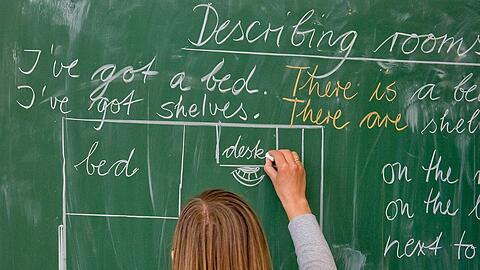 Describing rooms
I've got a bed. There is a be
I've got shelves. There are shel
bed
desk
on the
on the
next to